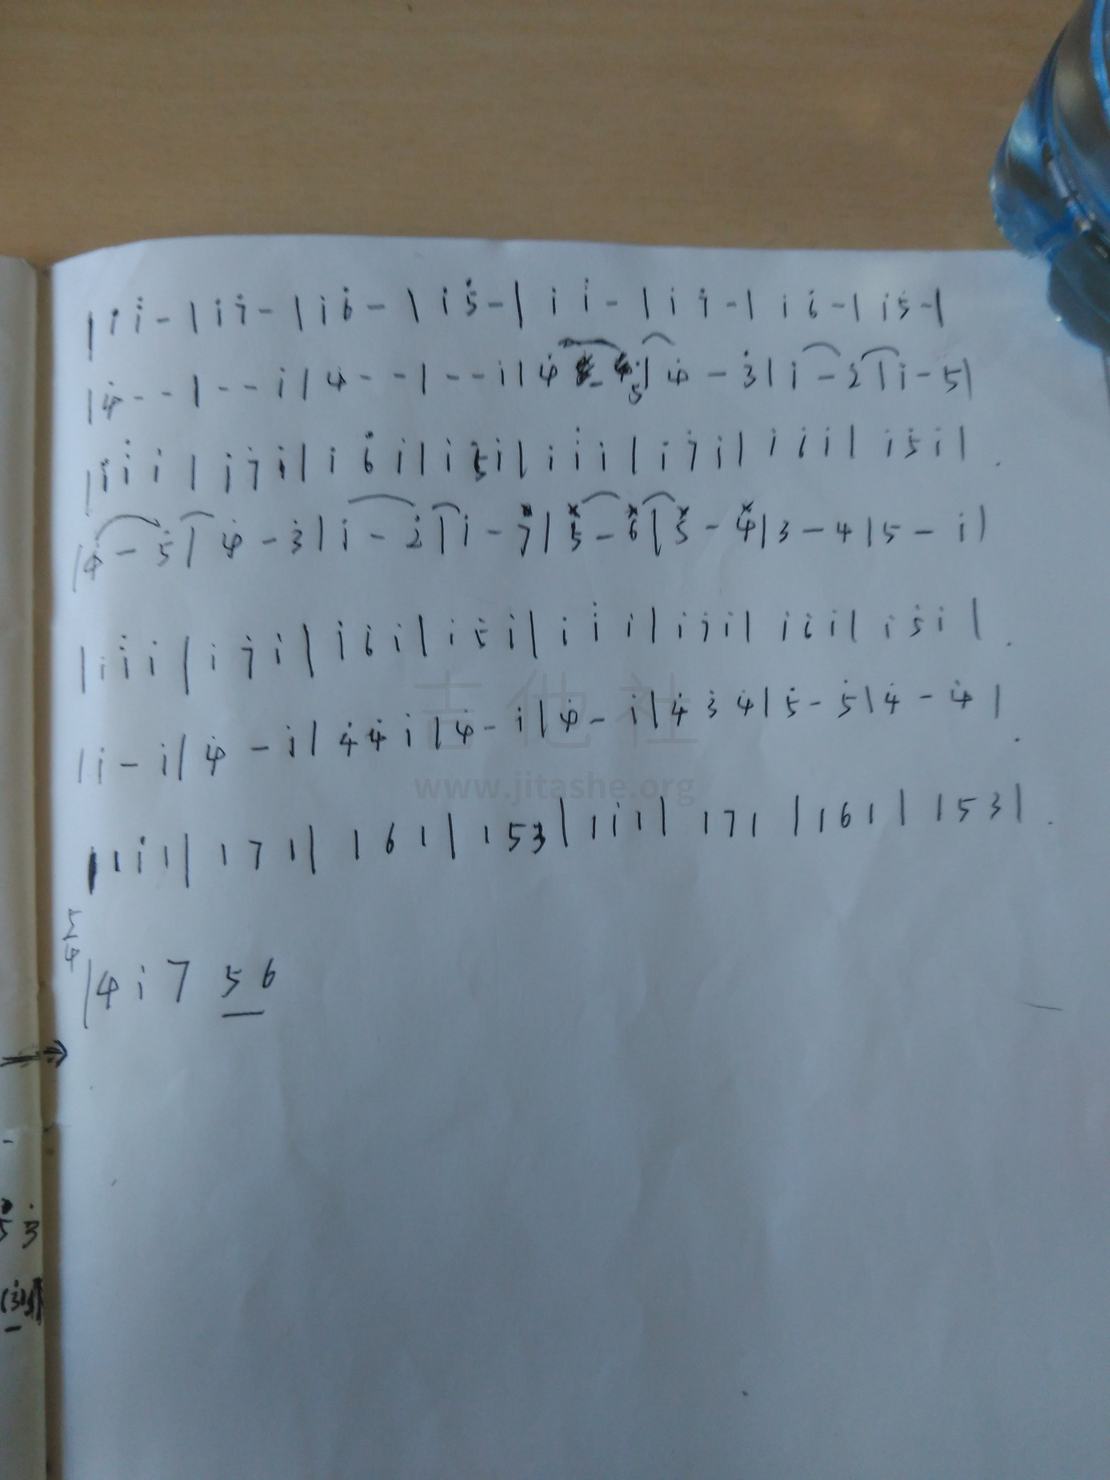 | i i - | i 7̇ - | i 6̇ - | i 5̇ - | i i - | i 7̇ - | i 6̇ - | i 5 - |
| 4̇ - - | - - i | 4̇ - - | - - i | 4̇ - 5̇ | 4̇ - 3̇ | i - 2̇ | i - 5 |
| i i i | i 7̇ i | i 6̇ i | i 5̇ i | i i i | i 7̇ i | i 6̇ i | i 5̇ i |
| 4̇ - 5̇ | 4̇ - 3̇ | i - 2̇ | i - 7 | 5 - 6 | 5 - 4 | 3 - 4 | 5 - i |
| i i i | i 7̇ i | i 6̇ i | i 5̇ i | i i i | i 7̇ i | i 6̇ i | i 5̇ i |
| i - i | 4̇ - i | 4̇ 4̇ i | 4̇ - i | 4̇ - i | 4̇ 3̇ 4̇ | 5̇ - 5̇ | 4̇ - 4̇ |
吉他社
www.jitashe.org
| 1 i 1 | 1 7 1 | 1 6 1 | 1 5 3 | 1 i 1 | 1 7 1 | 1 6 1 | 1 5 3 |
5/4
| 4 i 7 5 6
5̇ 3̇